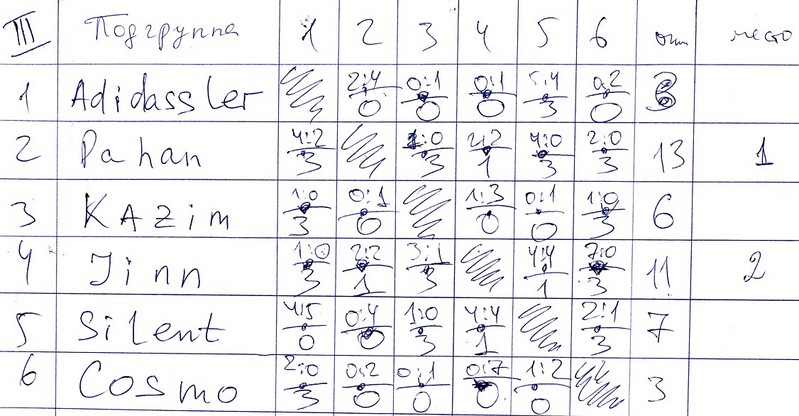 III Подгруппа 1 2 3 4 5 6 очк место
1 Adidassler 2:4 0:1 0:1 5:4 0:2
0 0 0 3 0 3
2 Pahan 4:2 1:0 2:2 4:0 2:0
3 3 1 3 3 13 1
3 KAzim 1:0 0:1 1:3 0:1 1:0
3 0 0 0 3 6
4 Jinn 1:0 2:2 3:1 4:4 7:0
3 1 3 1 3 11 2
5 Silent 4:5 0:4 1:0 4:4 2:1
0 0 3 1 3 7
6 Cosmo 2:0 0:2 0:1 0:7 1:2
3 0 0 0 0 3